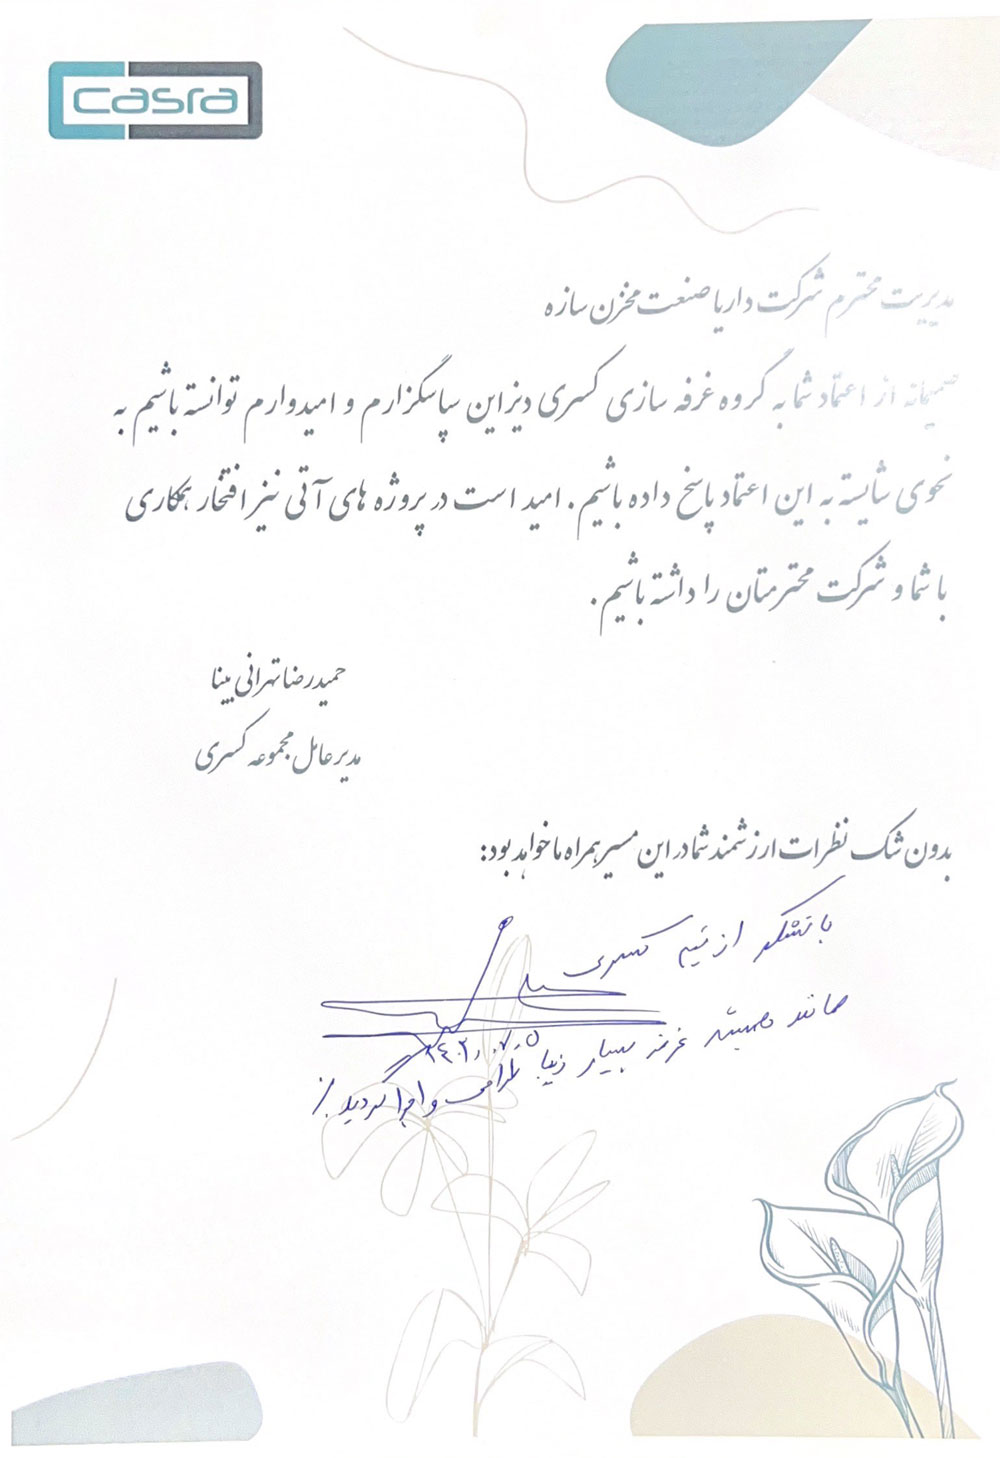 casra
مدیریت محترم شرکت داریا صنعت مخزن سازه
صمیمانه از اعتماد شما به گروه غرفه سازی کسری دیزاین سپاسگزارم و امیدوارم توانسته باشیم به
نحوی شایسته به این اعتماد پاسخ داده باشیم. امید است در پروژه های آتی نیز افتخار همکاری
با شما و شرکت محترمتان را داشته باشیم.
حمیدرضا تهرانی بینا
مدیر عامل مجموعه کسری
بدون شک نظرات ارزشمند شما در این مسیر همراه ما خواهد بود:
با تشکر از تیم کسری
همانند همیشه غرفه بسیار زیبا طراحی و اجرا گردید